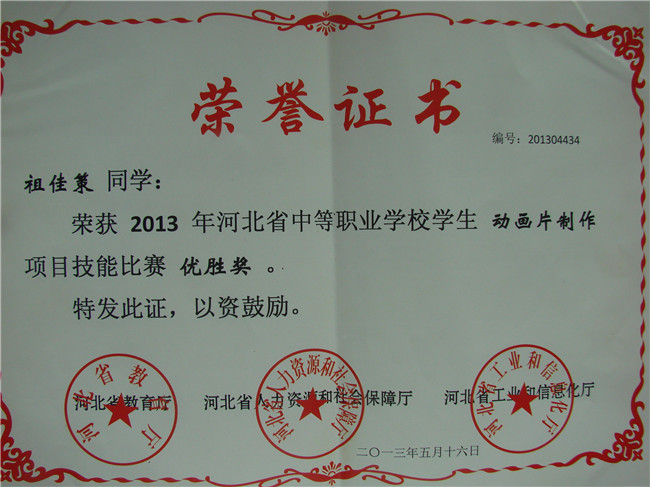 荣誉证书
编号：201304434
祖佳策 同学：
荣获 2013 年河北省中等职业学校学生 动画片制作
项目技能比赛 优胜奖 。
特发此证，以资鼓励。
河北省教育厅
河北省人力资源和社会保障厅
河北省工业和信息化厅
河北省教育厅 河北省人力资源和社会保障厅 河北省工业和信息化厅
二〇一三年五月十六日